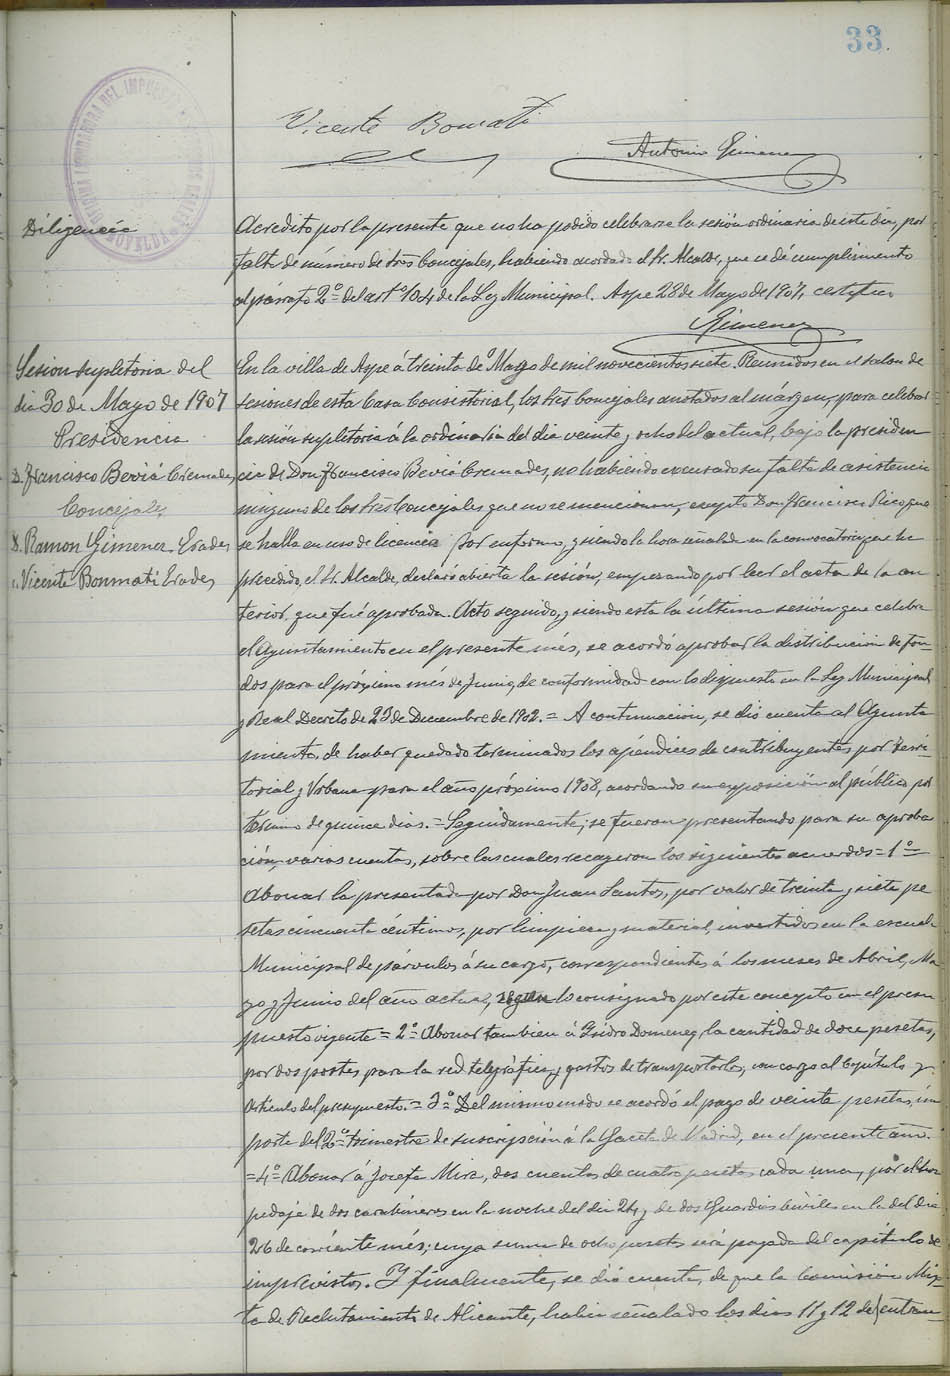 33.
Vicente Bonmati
Antonio Gimenez
Diligencia
Acredito por la presente que no ha podido celebrarse la sesión ordinaria de este dia, por
falta de número de tres Concejales, habiendo acordado el Sr. Alcalde, que se dé cumplimiento
al párrafo 2º del artº 104 de la Ley Municipal. Aspe 28 de Mayo de 1907, certifico
Gimenez
Sesion supletoria del
dia 30 de Mayo de 1907
Presidencia
D. Francisco Beviá Cremades
Concejales
D. Ramon Gimenez Erades
" Vicente Bonmati Erades
En la villa de Aspe á treinta de Mayo de mil novecientos siete. Reunidos en el salon de
sesiones de esta Casa Consistorial, los tres Concejales anotados al márgen, para celebrar
la sesión supletoria á la ordinaria del dia veinte y ocho del actual, bajo la presiden
cia de Don Francisco Beviá Cremades, no habiendo excusado su falta de asistencia
ninguno de los tres Concejales que no se mencionan, excepto Don Francisco Pico que
se halla en uso de licencia por enfermo, y siendo la hora señalada en la convocatoria que ha
precedido, el Sr. Alcalde, declaró abierta la sesión, empezando por leer el acta de la an
terior que fué aprobada. Acto seguido, y siendo esta la última sesión que celebra
el Ayuntamiento en el presente més, se acordó aprobar la distribucion de fon-
dos para el próximo més de Junio, de conformidad con lo dispuesto en la Ley Municipal
y Real Decreto de 23 de Diciembre de 1902. = A continuación, se dió cuenta al Ayunta
miento, de haber quedado terminados los apéndices de contribuyentes por Terri-
torial y Urbana para el año próximo 1908, acordando su exposición al público por
término de quince dias. = Seguidamente, se fueron presentando para su aproba
ción, varias cuentas, sobre las cuales recayeron los siguientes acuerdos = 1º=
Abonar la presentada por Don Juan Santos, por valor de treinta y siete pe
setas cincuenta céntimos, por limpieza y material, invertidos en la escuela
Municipal de párvulos á su cargo, correspondientes á los meses de Abril, Ma
yo y Junio del año actual, segun lo consignado por este concepto en el presu
puesto vigente = 2º= Abonar tambien á Isidro Domenech, la cantidad de doce pesetas,
por dos postes para la red telegráfica, y gastos de transportarlos, con cargo al Capítulo y
Artículo del presupuesto. = 3º= Del mismo modo se acordó el pago de veinte pesetas, im
porte del 2º trimestre de suscripción á la Gaceta de Madrid, en el presente año.
= 4º= Abonar á Josefa Mira, dos cuentas de cuatro pesetas cada una, por el hos
pedaje de dos carabineros en la noche del dia 24, y de dos Guardias civiles en la del dia
26 de corriente més; cuya suma de ocho pesetas será pagada del capítulo de
imprevistos. Y finalmente, se dió cuenta, de que la Comisión Mix-
ta de Reclutamiento de Alicante, habia señalado los dias 11 y 12 de entran-